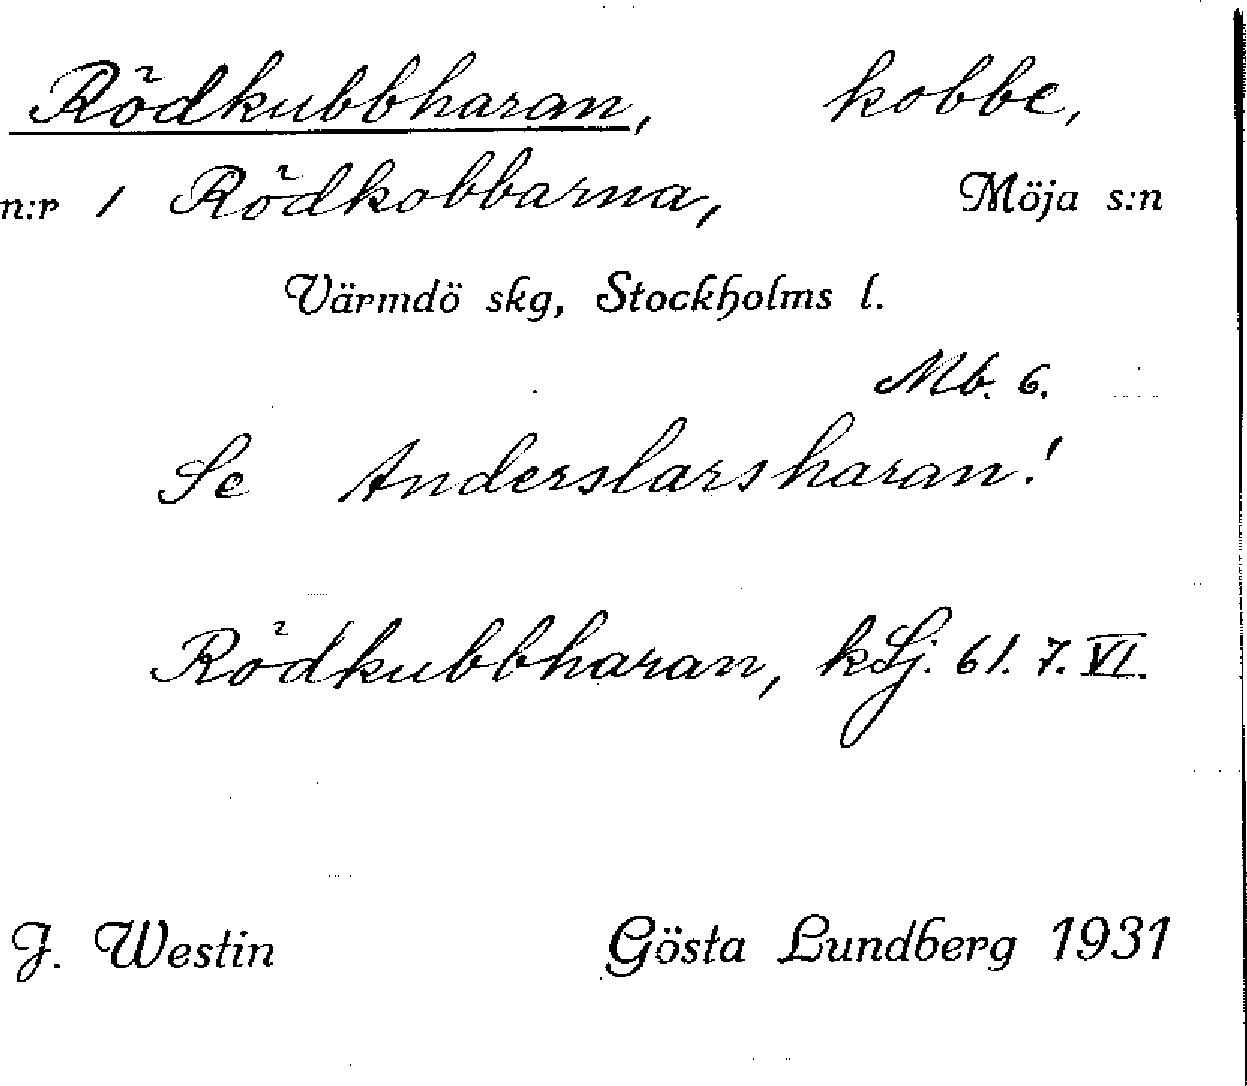 Rödkubbharan, kobbe,
n:r 1 Rödkobbarna, Möja s:n
Värmdö skg, Stockholms l.
Mb. 6.
Se Anderslarsharan!
Rödkubbharan, kLj. 61. 7. VI.
J. Westin Gösta Lundberg 1931